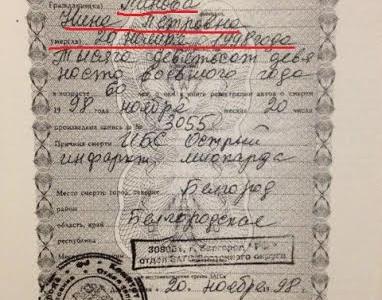 Гражданин(ка)
Нина Петровна
умер(ла) 20 ноября 1998 года
Тысяча девятьсот девя
носто восьмого года
в возрасте 60 лет, о чем в книге регистрации актов о смерти
19 98 года ноября месяца 20 числа
произведена запись за № 3055
Причина смерти ИБС Острый
инфаркт миокарда
Место смерти: город, селение Белгород
район
область, край Белгородская
республика
г. Белгород
отдел ЗАГС округа
20 ноября 98